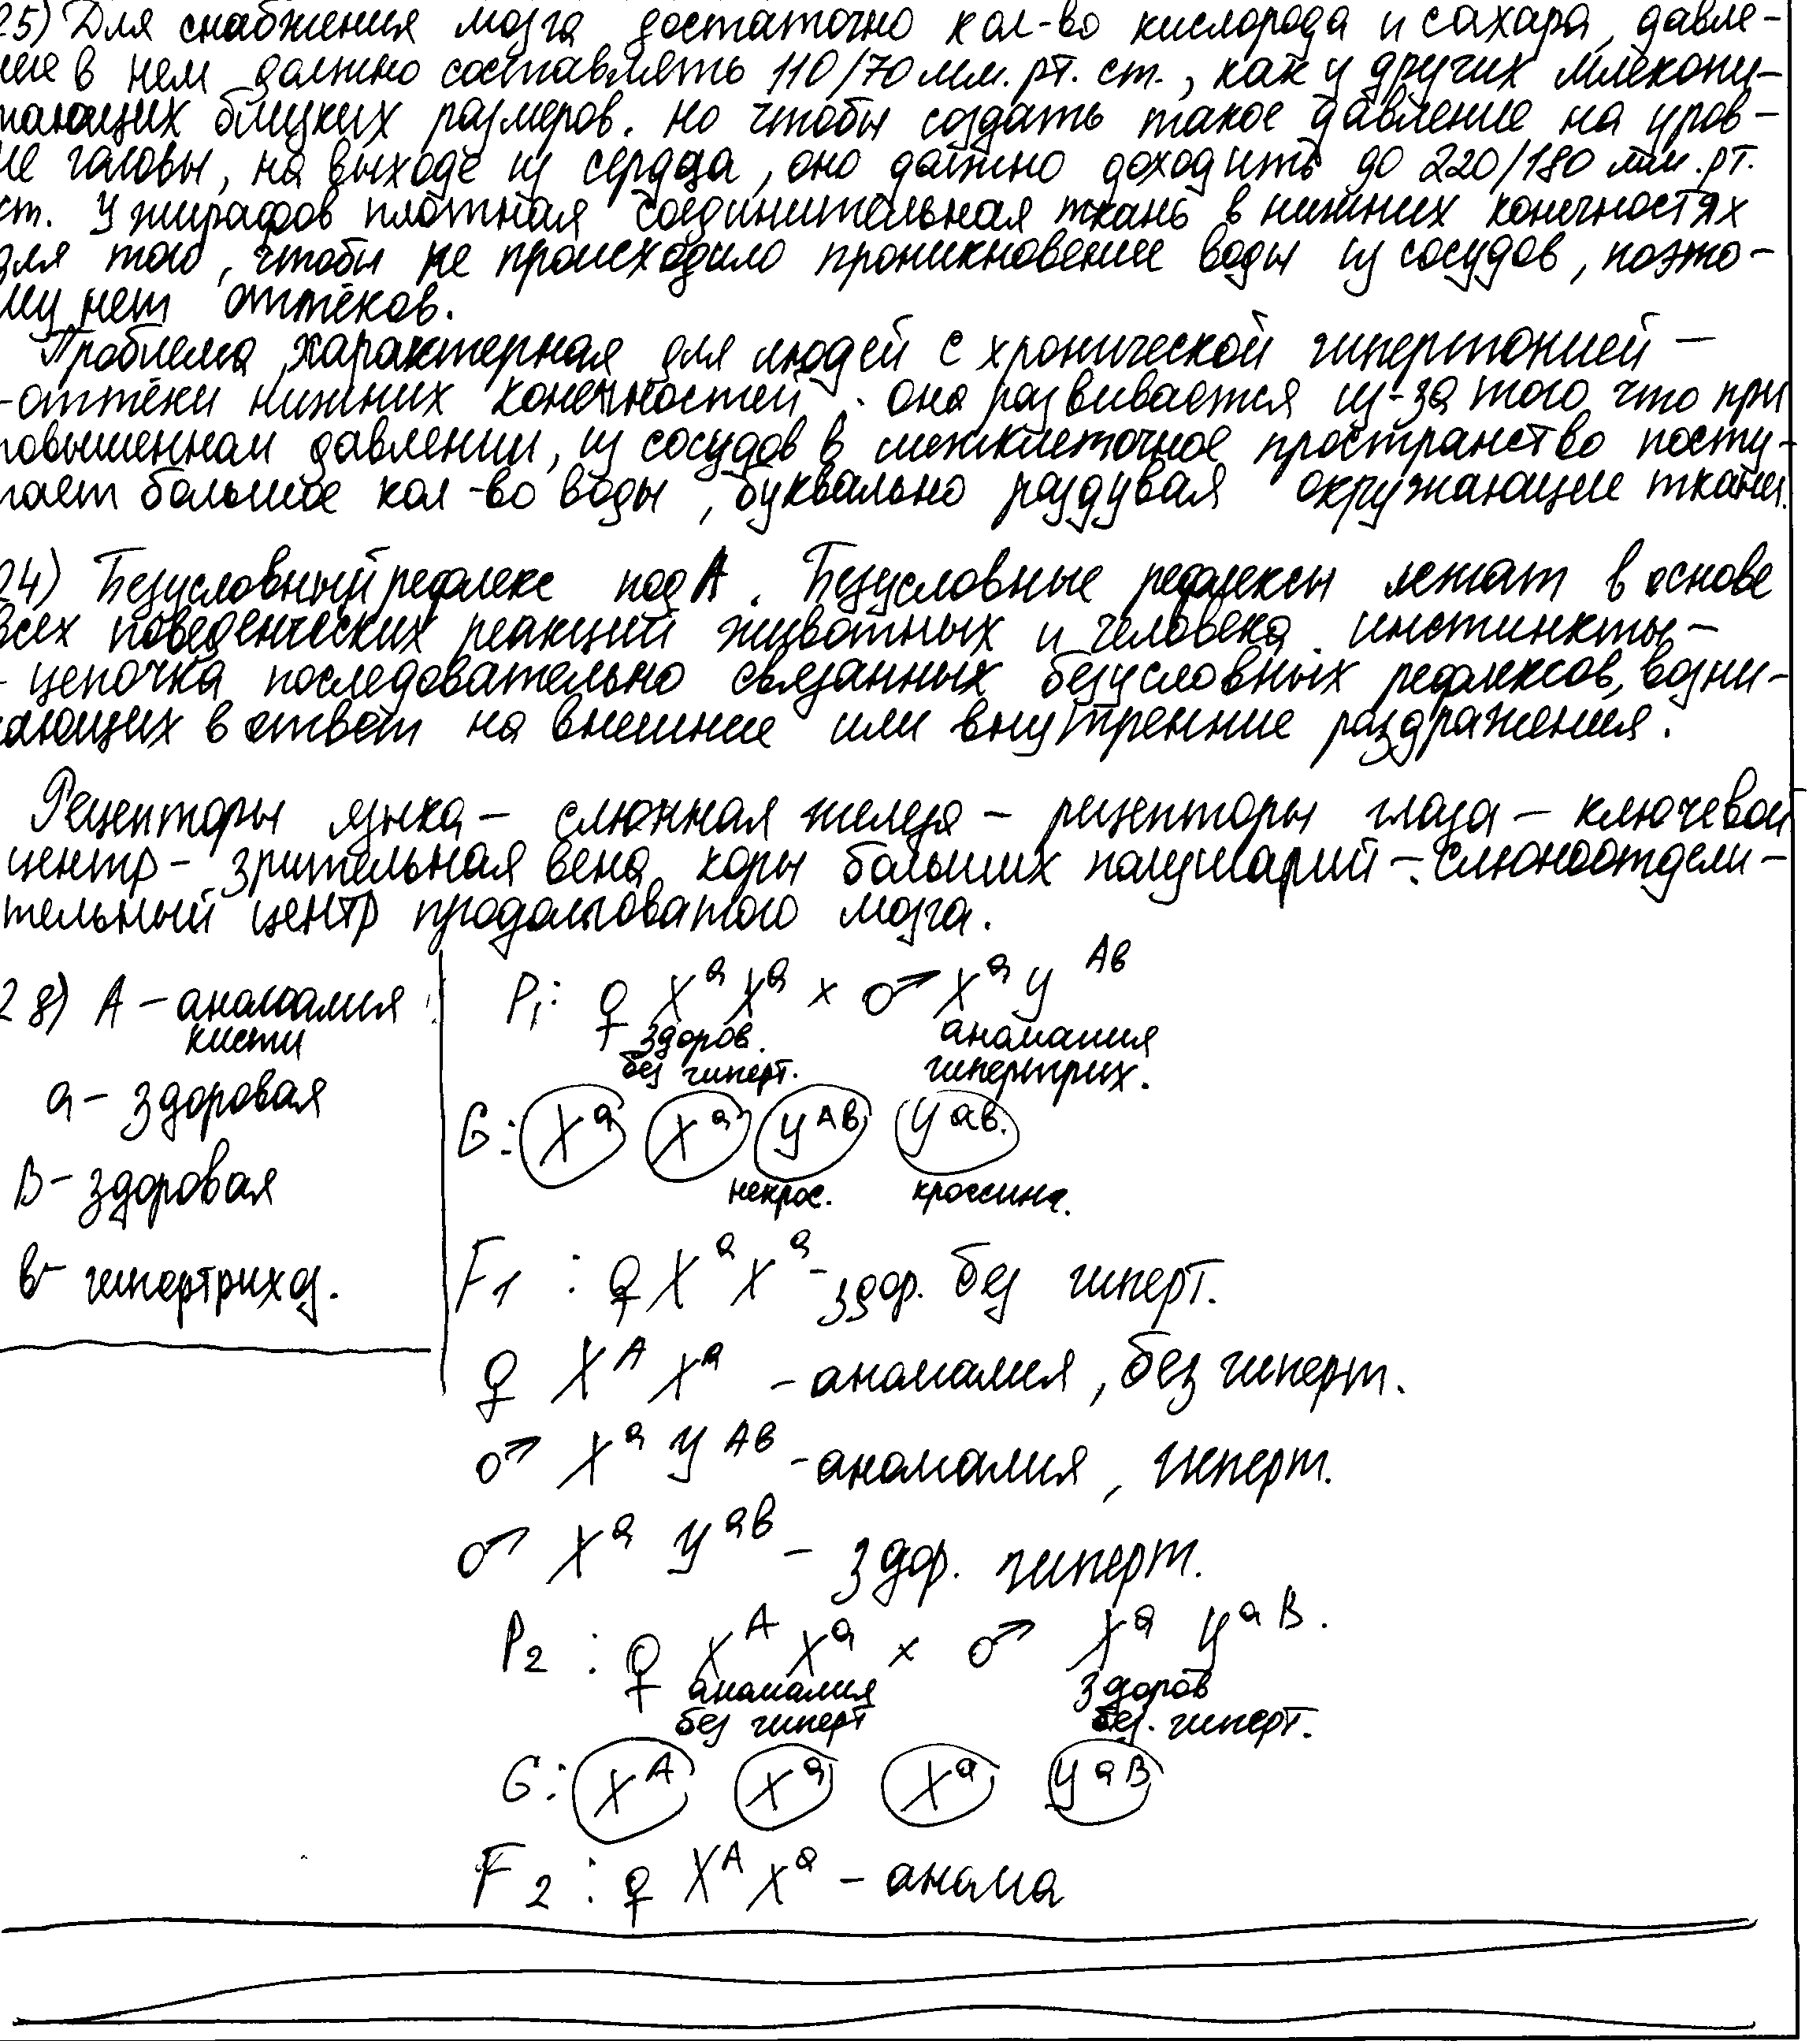 25) Для снабжения мозга достаточно кол-во кислорода и сахара, давле-
ние в нем должно составлять 110/70 мм. рт. ст., как у других млекопи-
тающих близких размеров. Но чтобы создать такое давление на уров-
не головы, на выходе из сердца, оно должно доходить до 220/180 мм. рт.
ст. У жирафов плотная соединительная ткань в нижних конечностях
для того, чтобы не происходило проникновение воды из сосудов, поэто-
му нет оттёков.
Проблема, характерная для людей с хронической гипертонией -
- оттёки нижних конечностей. Она развивается из-за того что при
повышенном давлении, из сосудов в межклеточное пространство посту-
пает большое кол-во воды, буквально раздувая окружающие ткани.
24) Безусловный рефлекс под А. Безусловные рефлексы лежат в основе
всех поведенческих реакций животных и человека. инстинкты -
- цепочка последовательно связанных безусловных рефлексов, возни-
кающих в ответ на внешние или внутренние раздражения.
Рецепторы языка - слюнная железа - рецепторы глаза - ключевой
центр - зрительная вена коры больших полушарий - слюноотдели-
тельный центр продолговатого мозга.
28) А - аномалия
кисти
а - здоровая
В - здоровая
в - гипертрихоз.
P₁: ♀ Xᵃ Xᵃ × ♂ Xᵃ Y ᴬᵇ
здоров. аномалия
без гиперт. гипертрих.
G: Xᵃ Xᵃ Yᴬᵇ Yᵃᵇ.
некрос. кроссинг.
F₁ : ♀ Xᵃ Xᵃ - здор. без гиперт.
♀ Xᴬ Xᵃ - аномалия, без гиперт.
♂ Xᵃ Yᴬᵇ - аномалия, гиперт.
♂ Xᵃ Yᵃᵇ - здор. гиперт.
P₂ : ♀ Xᴬ Xᵃ × ♂ Xᵃ Yᵃᴮ.
аномалия здоров
без гиперт без. гиперт.
G: Xᴬ Xᵃ Xᵃ Yᵃᴮ
F₂ : ♀ Xᴬ Xᵃ - анома